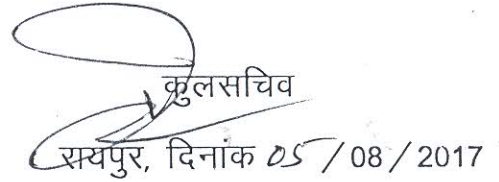 कुलसचिव
रायपुर, दिनांक 05 / 08 / 2017